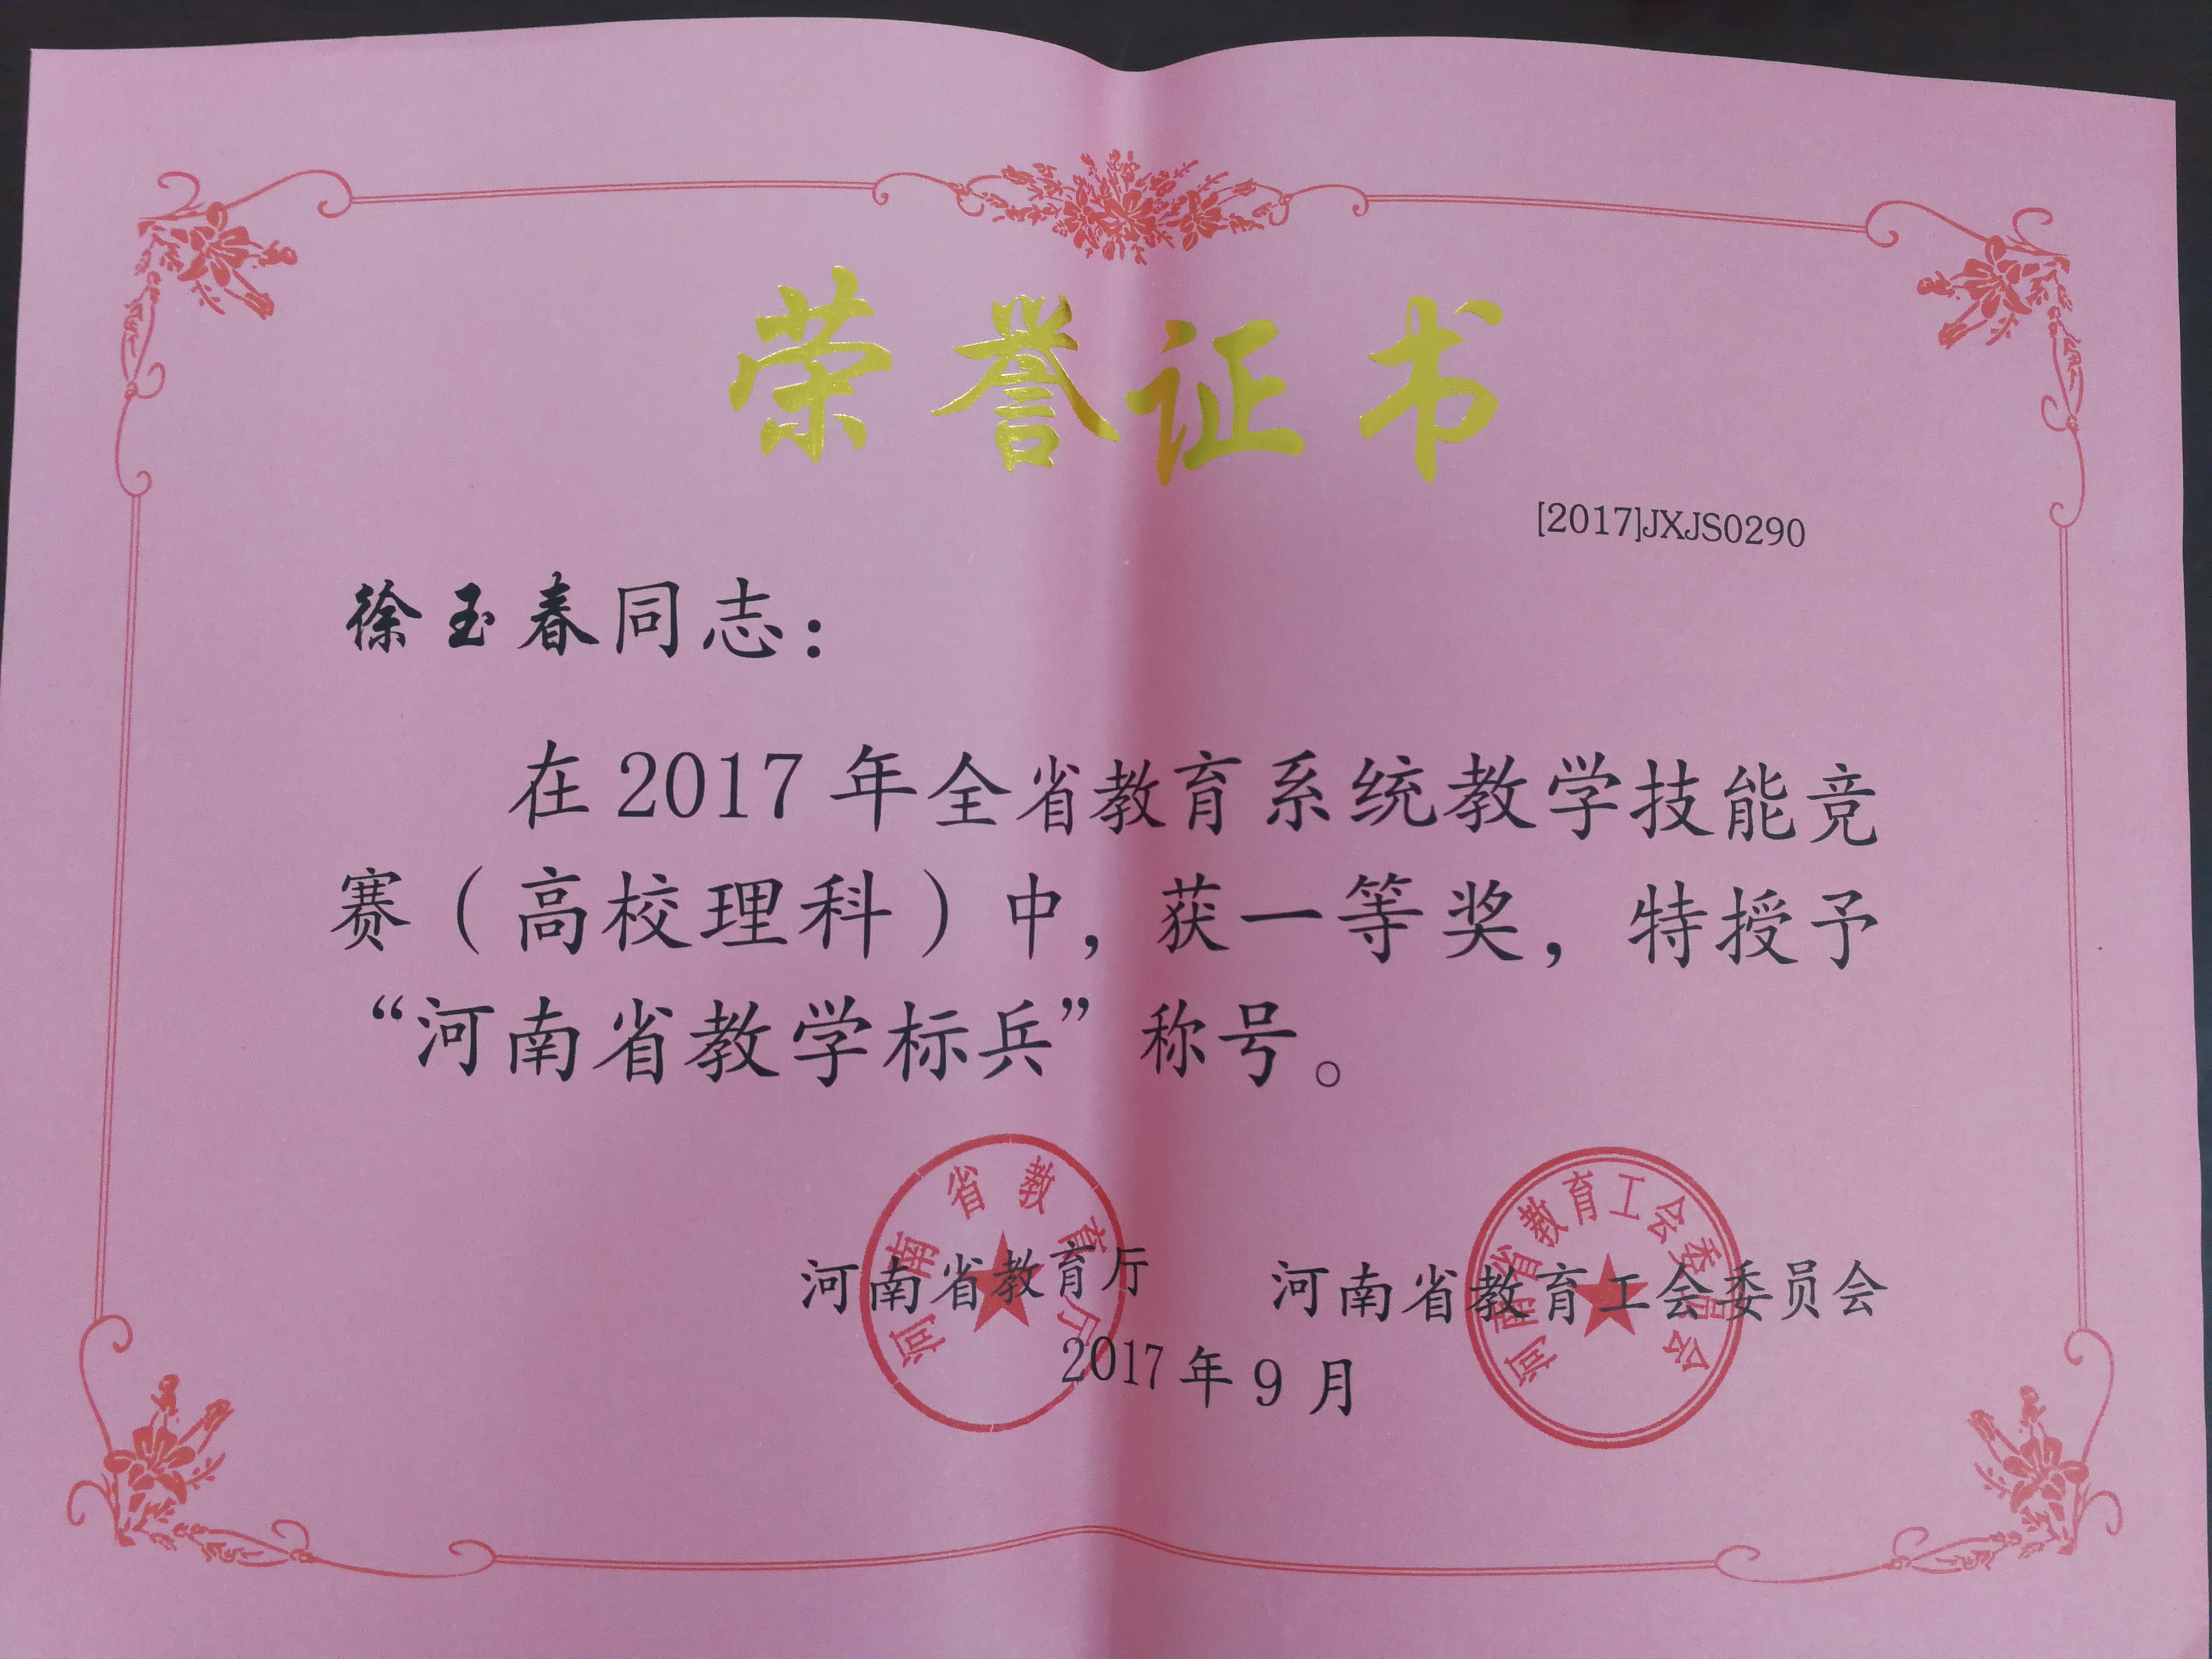 荣誉证书
[2017]JXJS0290
徐玉春同志：
在2017年全省教育系统教学技能竞
赛（高校理科）中，获一等奖，特授予
“河南省教学标兵”称号。
河南省教育厅 河南省教育工会委员会
2017年9月
河南省教育厅
河南省教育工会委员会